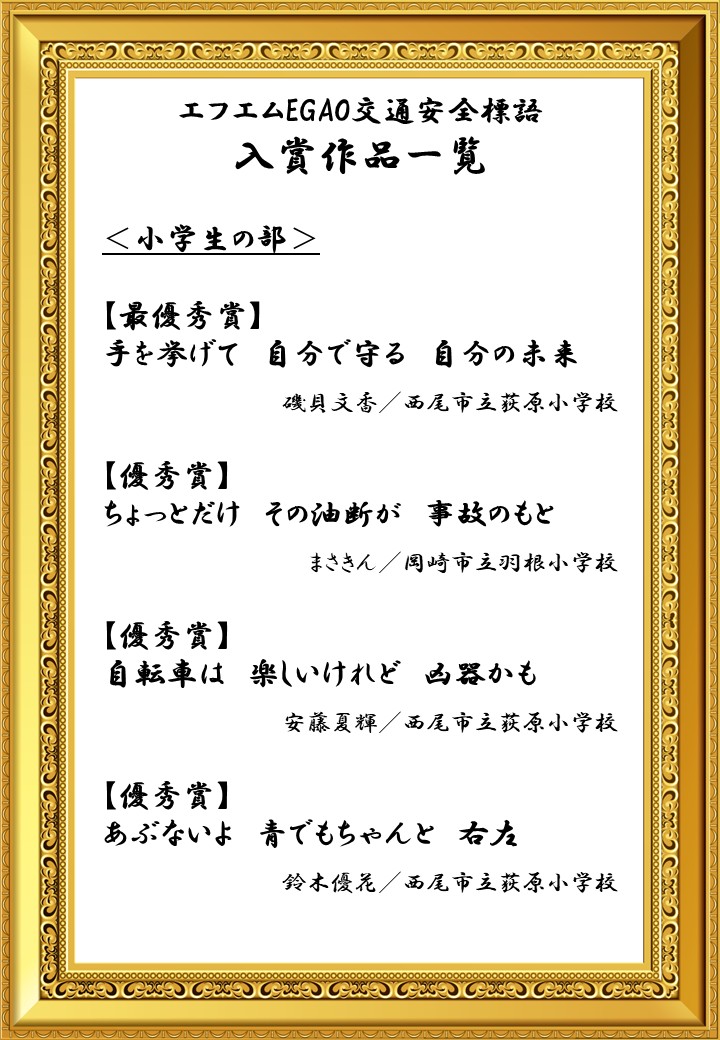 エフエムEGAO交通安全標語
入賞作品一覧
＜小学生の部＞
【最優秀賞】
手を挙げて　自分で守る　自分の未来
磯貝文香／西尾市立荻原小学校
【優秀賞】
ちょっとだけ　その油断が　事故のもと
まさきん／岡崎市立羽根小学校
【優秀賞】
自転車は　楽しいけれど　凶器かも
安藤夏輝／西尾市立荻原小学校
【優秀賞】
あぶないよ　青でもちゃんと　右左
鈴木優花／西尾市立荻原小学校